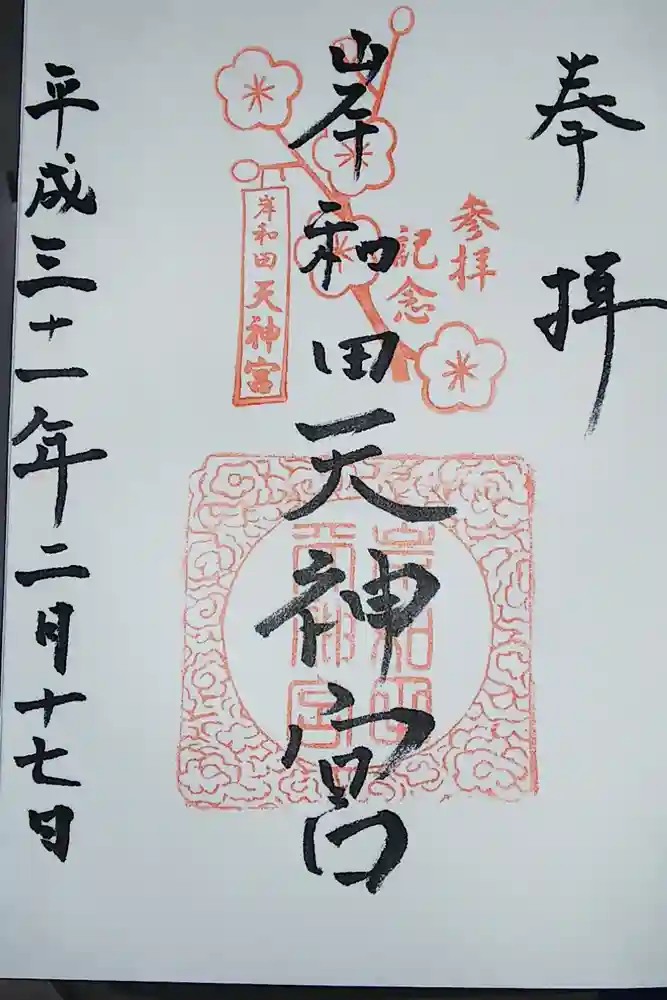 奉拝
参拝
記念
岸和田天神宮
岸和田天神宮
岸和田
天神宮
平成三十一年二月十七日